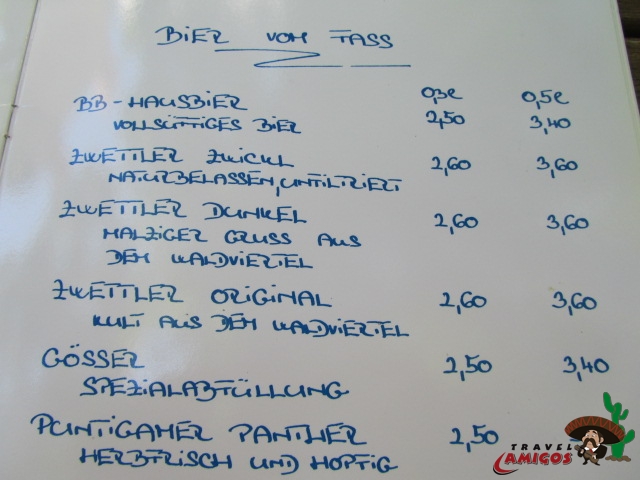 BIER VOM FASS
0,3l 0,5l
BB-HAUSBIER
VOLLSÜFFIGES BIER 2,50 3,40
ZWETTLER ZWICKL 2,60 3,60
NATURBELASSEN, UNFILTRIERT
ZWETTLER DUNKEL 2,60 3,60
MALZIGER GRUSS AUS
DEM WALDVIERTEL
ZWETTLER ORIGINAL 2,60 3,60
KULT AUS DEM WALDVIERTEL
GÖSSER 2,50 3,40
SPEZIALABFÜLLUNG
PUNTIGAMER PANTHER 2,50
HERBFRISCH UND HOPFIG
TRAVEL
AMIGOS